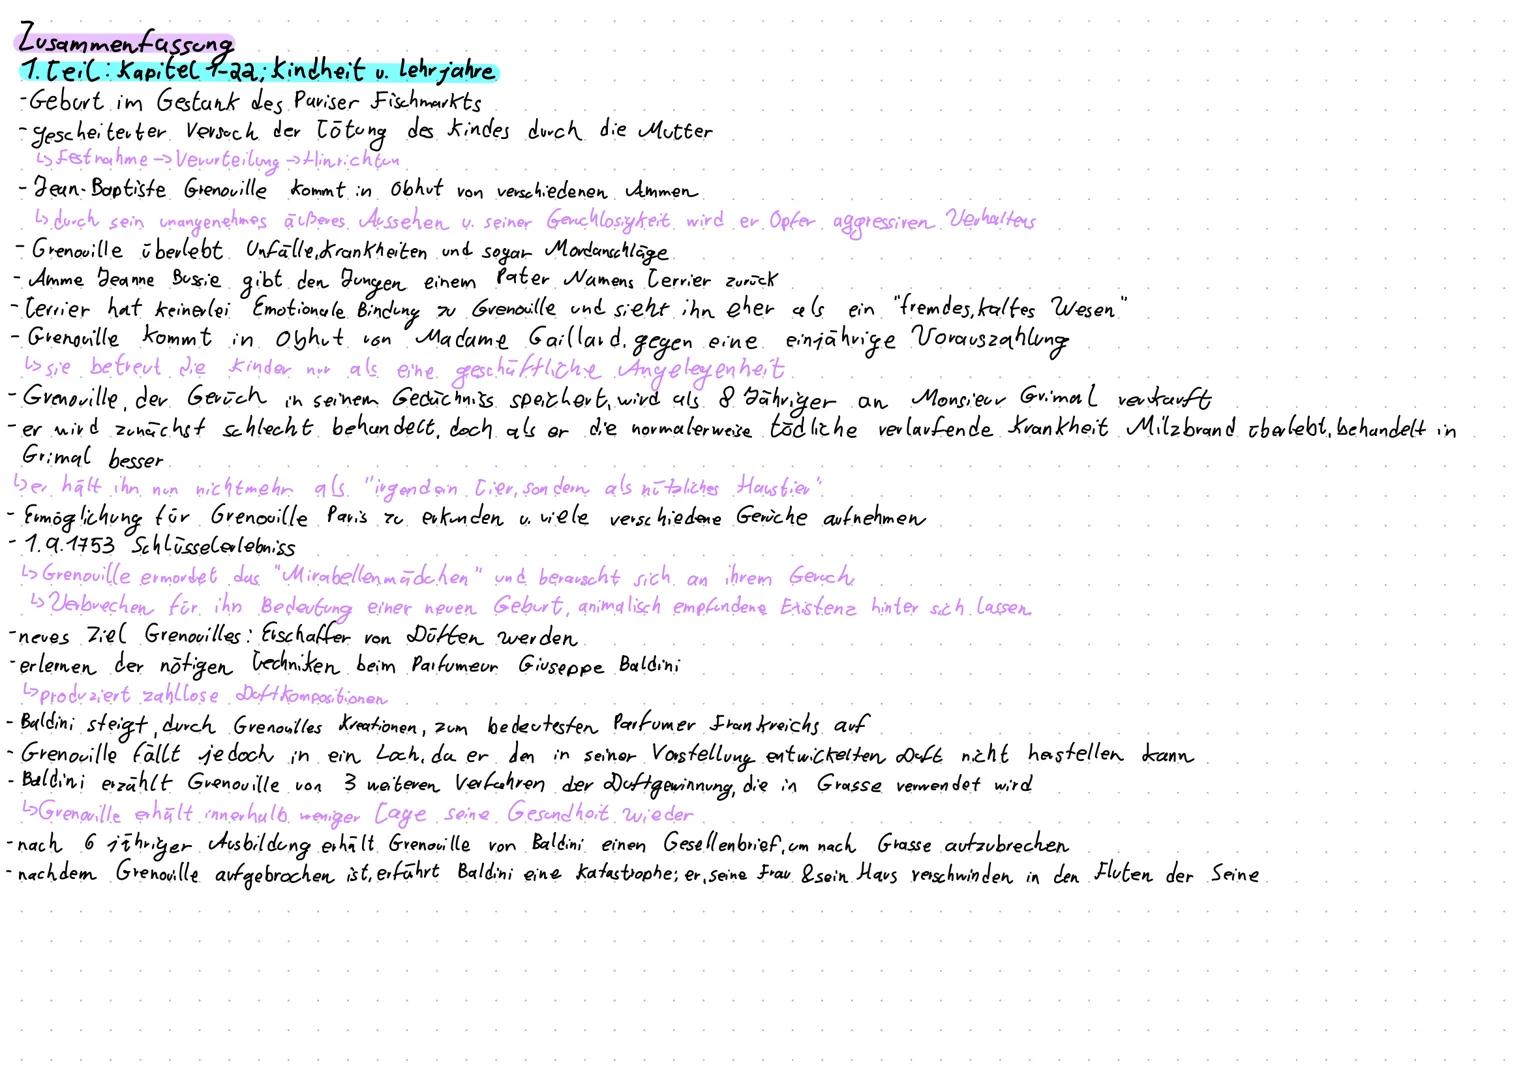 Zusammenfassung
1. Teil: Kapitel 1-22; Kindheit u. Lehrjahre
-Geburt im Gestank des Pariser Fischmarkts
-gescheiterter Versuch der Tötung des Kindes durch die Mutter
↳ Festnahme → Verurteilung → Hinrichten
- Jean-Baptiste Grenouille kommt in Obhut von verschiedenen Ammen
↳ durch sein unangenehmes äußeres Aussehen u. seiner Geruchlosigkeit wird er Opfer aggressiven Verhaltens
- Grenouille überlebt Unfälle, Krankheiten und sogar Mordanschläge
- Amme Jeanne Bussie gibt den Jungen einem Pater Namens Terrier zurück
- Terrier hat keinerlei Emotionale Bindung zu Grenouille und sieht ihn eher als ein "fremdes, kaltes Wesen"
- Grenouille kommt in Obhut von Madame Gaillard, gegen eine einjährige Vorauszahlung
↳ sie betreut die Kinder nur als eine geschäftliche Angelegenheit
- Grenouille, der Gerüch in seinem Gedächniss speichert, wird als 8 Jähriger an Monsieur Grimal verkauft
-er wird zunächst schlecht behandelt, doch als er die normalerweise tödliche verlaufende Krankheit Milzbrand überlebt, behandelt in
Grimal besser
↳ er hält ihn nun nichtmehr als "irgendein Tier, sondern als nützliches Haustier"
- Ermöglichung für Grenouille Paris zu erkunden u. viele verschiedene Gerüche aufnehmen
- 1.9.1753 Schlüsselerlebniss
↳ Grenouille ermordet das "Mirabellenmädchen" und berauscht sich an ihrem Geruch
↳ Verbrechen für ihn Bedeutung einer neuen Geburt, animalisch empfundene Existenz hinter sich lassen
-neues Ziel Grenouilles: Erschaffer von Düften werden
-erlernen der nötigen Techniken beim Parfumeur Giuseppe Baldini
↳ produziert zahllose Duftkompositionen
- Baldini steigt, durch Grenouilles Kreationen, zum bedeutesten Parfumer Frankreichs auf
- Grenouille fällt jedoch in ein Loch, da er den in seiner Vorstellung entwickelten Duft nicht herstellen kann
- Baldini erzählt Grenouille von 3 weiteren Verfahren der Duftgewinnung, die in Grasse verwendet wird
↳ Grenouille erhält innerhalb weniger Tage seine Gesundheit wieder
-nach 6 jähriger Ausbildung erhält Grenouille von Baldini einen Gesellenbrief, um nach Grasse aufzubrechen
-nachdem Grenouille aufgebrochen ist, erfährt Baldini eine Katastrophe; er, seine Frau & sein Haus verschwinden in den Fluten der Seine